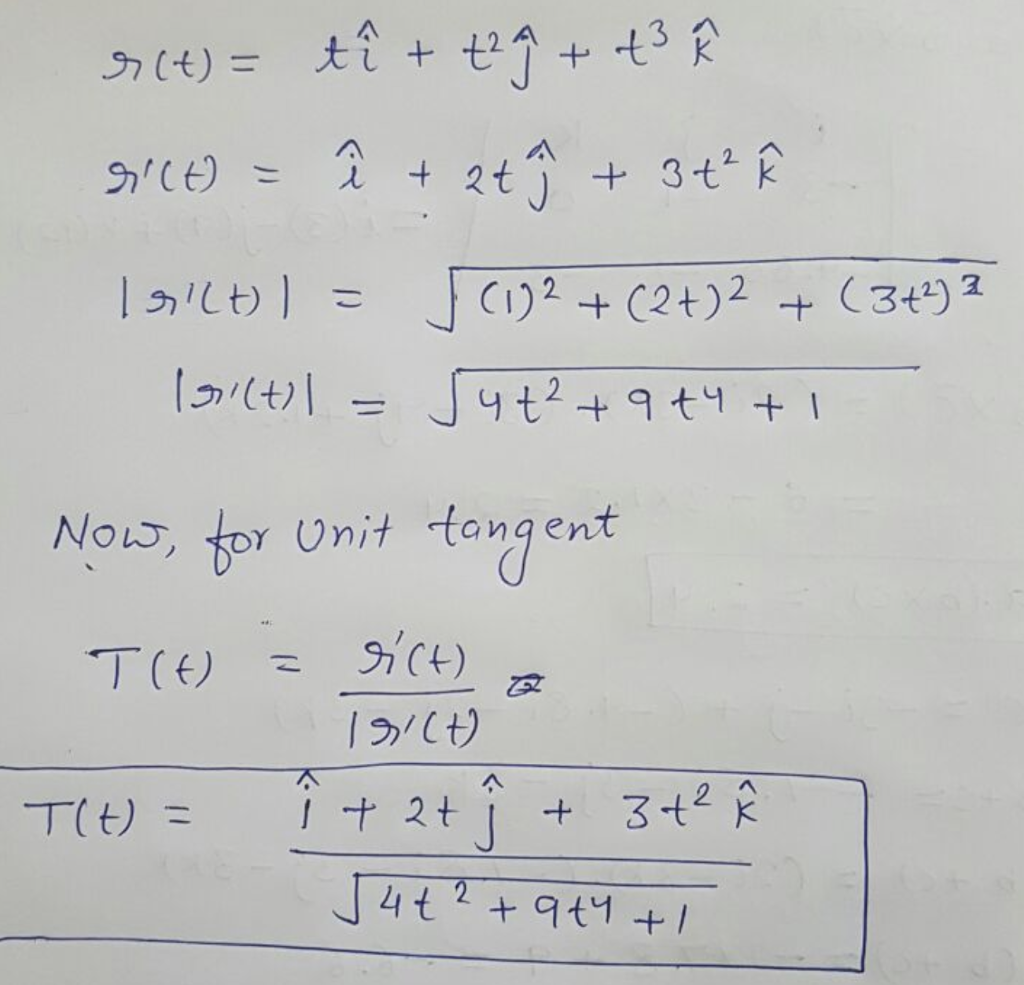 r(t) = tî + t²ĵ + t³ k̂
r'(t) = î + 2tĵ + 3t² k̂
|r'(t)| = √((1)² + (2t)² + (3t²)²)
|r'(t)| = √(4t² + 9t⁴ + 1)
Now, for Unit tangent
T(t) = r'(t) / |r'(t)
T(t) = (î + 2t ĵ + 3t² k̂) / √(4t² + 9t⁴ + 1)